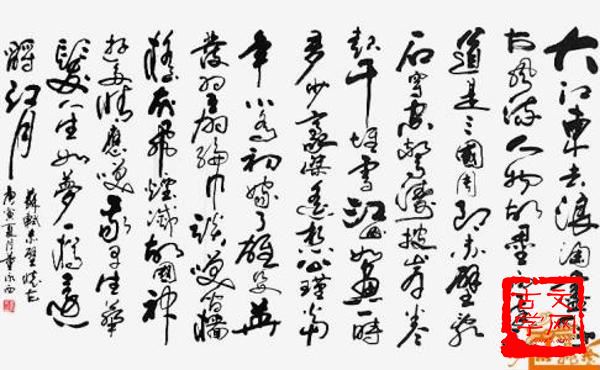 大江東去浪淘盡千
古風流人物故壘西邊人
道是三國周郎赤壁亂
石穿空驚濤拍岸卷
起千堆雪江山如畫一時
多少豪傑遙想公瑾當
年小喬初嫁了雄姿英
發羽扇綸巾談笑間檣
櫓灰飛煙滅故國神
游多情應笑我早生華
髮人生如夢一樽還
酹江月
蘇軾赤壁懷古
庚寅夏月
古文学网